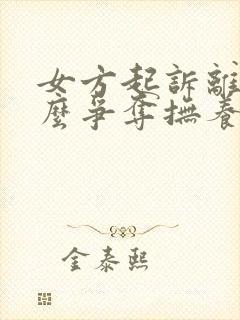 女方起訴離
麼爭奪撫養
金泰熙